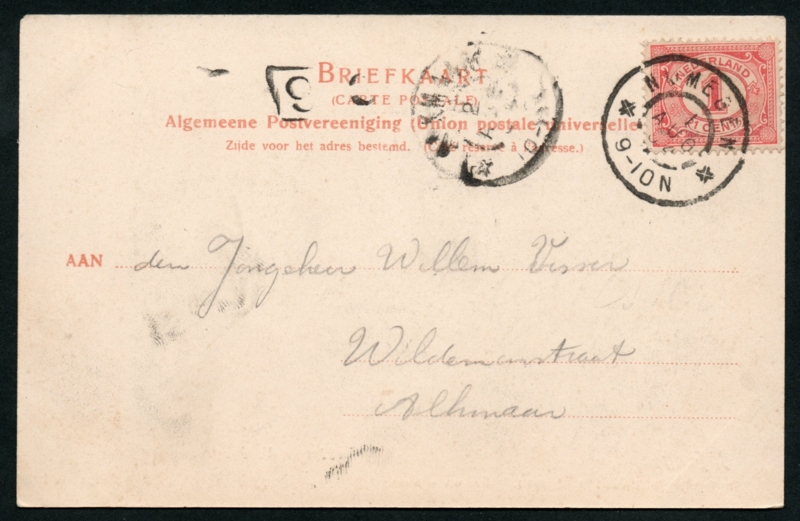 BRIEFKAART
(CARTE POSTALE)
Algemeene Postvereeniging (Union postale universelle)
Zijde voor het adres bestemd. (Côté réservé à l'adresse.)
NEDERLAND
1
CENT
NYMEGEN
9-10 N
3
AAN den Jongeheer Willem Visser
Wildemanstraat
Alkmaar